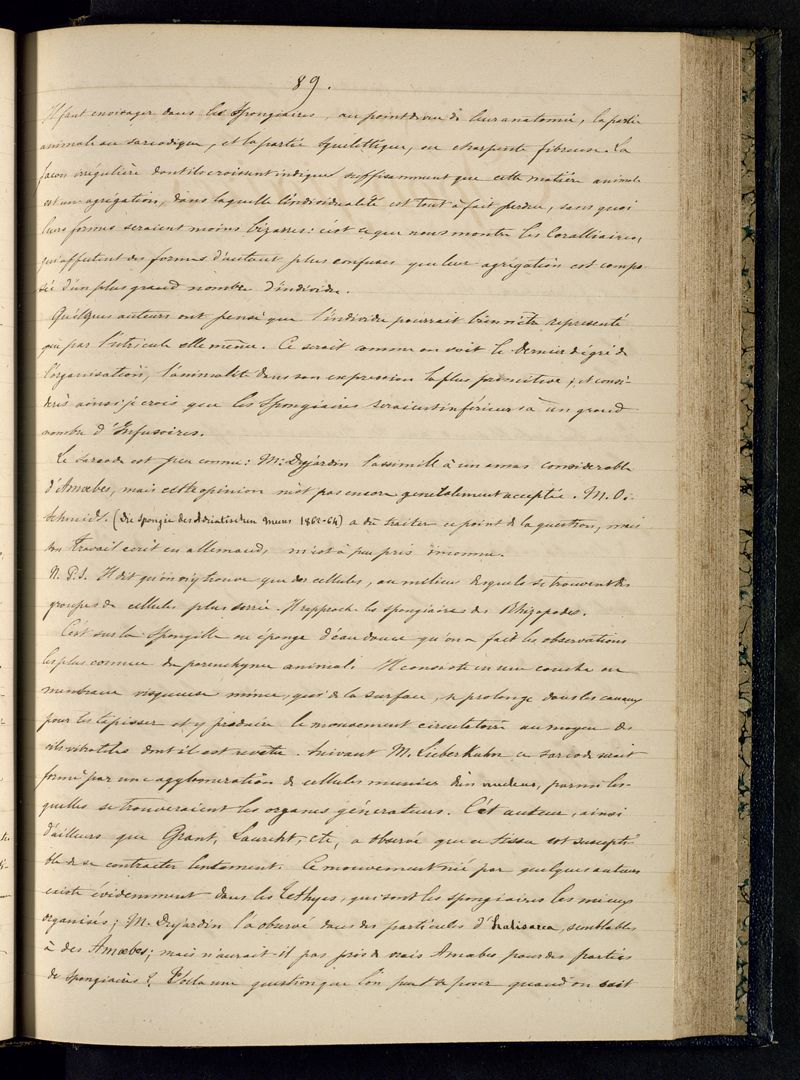 89.
Il faut envisager dans les Spongiaires, au point de vue de leur anatomie, la partie
animale ou sarcodique, et la partie squelettique, ou charpente fibreuse. La
façon irrégulière dont ils croissent indique suffisamment que cette matière animale
est une agrégation, dans laquelle l'individualité est tout à fait perdue, sans quoi
leurs formes seraient moins bizarres: c'est ce que nous montre les Coralliaires,
qui affectent des formes d'autant plus confuses que leur agrégation est compo-
sée d'un plus grand nombre d'individus.
Quelques auteurs ont pensé que l'individu pourrait bien n'être représenté
que par l'utricule elle même. Ce serait comme on voit le dernier dégré de
l'organisation, l'animalité dans son expression la plus primitive, et consi-
derés ainsi je crois que les Spongiaires seraient inférieurs à un grand
nombre d'Infusoires.
Le sarcode est peu connu: M. Dujardin l'assimile à un amas considérable
d'Amœbes, mais cette opinion n'est pas encore généralement acceptée. M. O.
Schmidt. (Die Spongie des Adriatischen meeres 1862-64) a du traiter ce point de la question, mais
son travail écrit en allemand, m'est à peu près inconnu.
N. P.S. Il dit qu'on n'y trouve que des cellules, au milieu desquels se trouvent des
groupes de cellules plus serré. Il rapproche les spongiaires des Rhizopodes.
C'est sur la Spongille ou éponge d'eau douce qu'on a fait les observations
les plus connues du parenchyme animal. Il consiste en une couche ou
membrane visqueuse mince, qui de la surface, se prolonge dans les canaux
pour les tapisser et y produire le mouvement circulatoire au moyen des
cils vibratiles dont il est revetu. Suivant M. Lieberkuhn ce sarcode serait
formé par une agglomération de cellules munies d'un nucleus, parmi les-
quelles se trouveraient les organes générateurs. Cet auteur, ainsi
d'ailleurs que Grant, Laurent, etc, a observé que ce tissu est suscepti-
ble de se contracter lentement. Ce mouvement nié par quelques auteurs
existe évidemment dans les Tethyes, qui sont les spongiaires les mieux
organisés; M. Dujardin l'a observé dans des particules d'halisarca, semblables
à des Amœbes; mais n'aurait-il pas pris de vrais Amœbes pour des parties
de Spongiaires? Voila une question que l'on peut se poser quand on sait